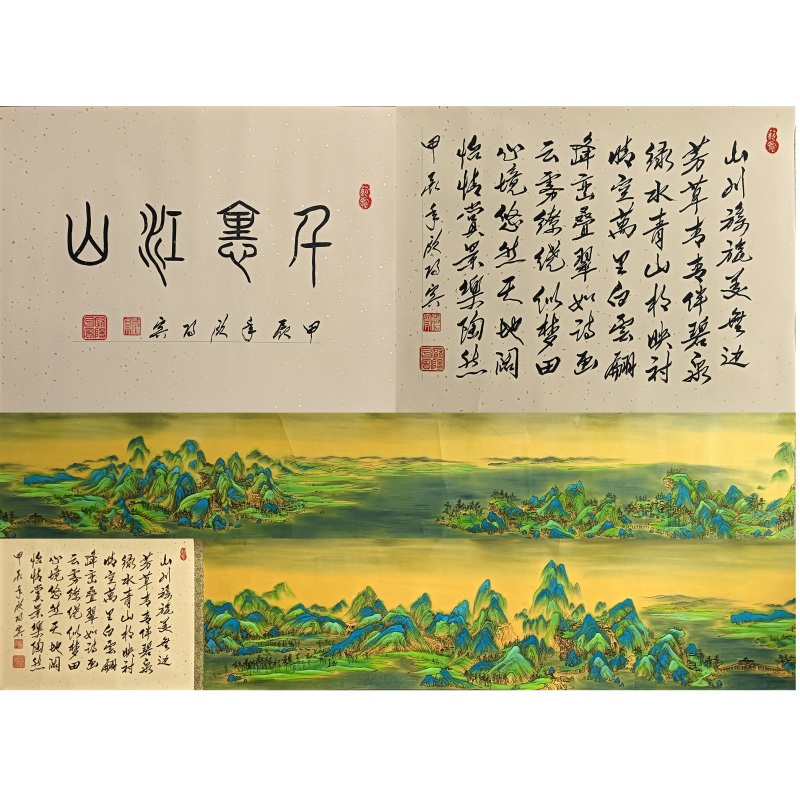 千里江山
甲辰年欧阳宾
山川旖旎美无边
芳草青青伴碧泉
绿水青山相映衬
晴空萬里白雲翩
峰峦叠翠如诗画
云雾缭绕似梦田
心境悠然天地阔
怡情赏景樂陶然
甲辰年欧阳宾
山川旖旎美无边
芳草青青伴碧泉
绿水青山相映衬
晴空萬里白雲翩
峰峦叠翠如诗画
云雾缭绕似梦田
心境悠然天地阔
怡情赏景樂陶然
甲辰年欧阳宾